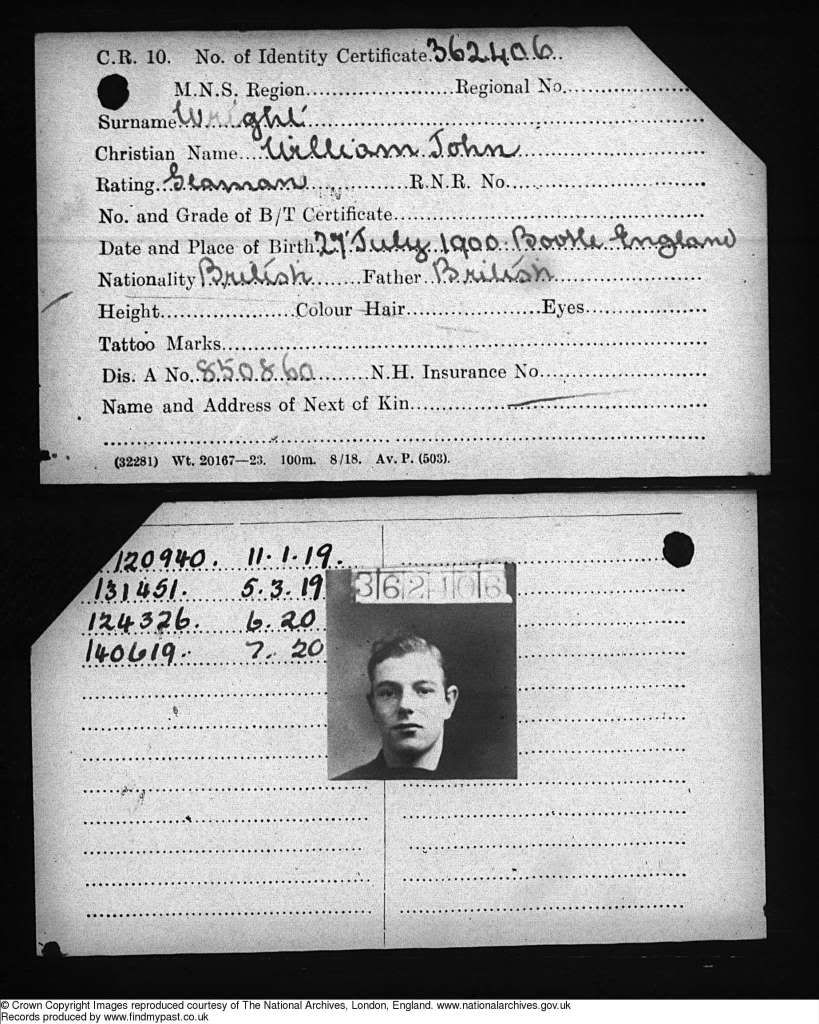 C.R. 10. No. of Identity Certificate 362406
M.N.S. Region Regional No.
Surname Wright
Christian Name William John
Rating Seaman R.N.R. No.
No. and Grade of B/T Certificate
Date and Place of Birth 27 July 1900 Bootle England
Nationality British Father British
Height Colour Hair Eyes
Tattoo Marks
Dis. A No. 850860 N.H. Insurance No.
Name and Address of Next of Kin
(32281) Wt. 20167—23. 100m. 8/18. Av. P. (503).
120940. 11.1.19.
131451. 5.3.19
124326. 6.20
140619. 7.20
362406
© Crown Copyright Images reproduced courtesy of The National Archives, London, England. www.nationalarchives.gov.uk
Records produced by www.findmypast.co.uk